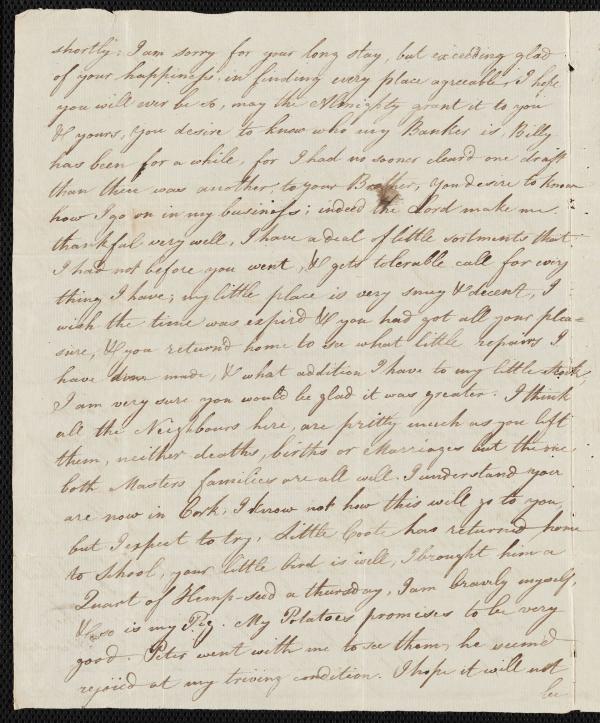 shortly; I am sorry for your long stay, but exceeding glad
of your happiness in finding every place agreeable, I hope
you will ever be so, may the Almighty grant it to you
& yours, you desire to know who my Banker is, Billy
has been for a while, for I had no sooner cleard one draft
than there was another, to your Brother, you desire to know
how I go on in my business; indeed the Lord make me
thankful very well, I have a deal of little sortments that
I had not before you went, & gets tolerable call for every
thing I have; my little place is very snug & decent, I
wish the time was expird & you had got all your plea=
sure, & you returnd home to see what little repairs I
have made, & what addition I have to my little
I am very sure you would be glad it was greater. I think
all the Neighbours here, are pritty much as you left
them, neither deaths, births or Marriages out
both Masters families are all well. I understand you
are now in Cork, I know not how this will go to you,
but I expect to try. Little Coote has returned home
to School, your little bird is well, I brought him a
Quart of Hemp-seed a thursday, I am bravly myself,
& so is my Pig. My Potatoes promises to be very
good. Peter went with me to see them, he seemd
rejoicd at my triving condition. I hope it will not
be